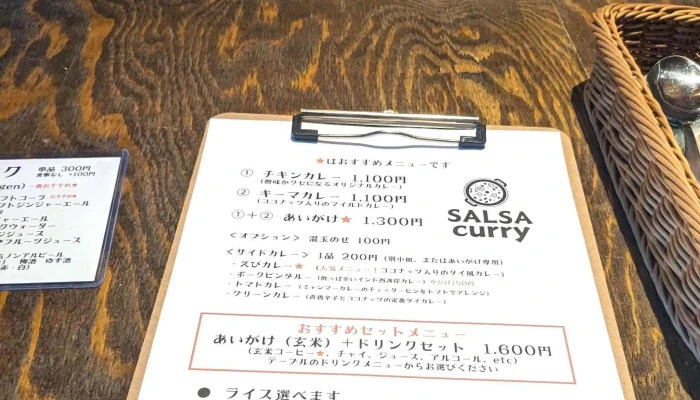 ク 単品 300円
食事なし +100円
gen) 一番おすすめ★
フトコーラ おすすめ★
フトジンジャーエール
ャーエール
クウォーター
ジジュース
・フルーツジュース
ちノンアルビール
梅酒 ゆず酒
赤・白)
★はおすすめメニューです
① チキンカレー 1.100円
(酸味がクセになるオリジナルカレー)
② キーマカレー 1.100円
(ココナッツ入りのマイルドカレー)
①+② あいがけ★ 1.300円
SALSA
curry
<オプション> 温玉のせ 100円
<サイドカレー> 1品 200円 (別小皿、またはあいがけ専用)
・えびカレー★ (人気メニュー!ココナッツ入りのタイ風カレー)
・ポークビンダルー (酸っぱ辛いインド西海岸カレー) 今だけ150円
・トマトカレー (ミャンマーカレーのチェッターヒンをトマトでアレンジ)
・グリーンカレー (青唐辛子とココナッツの定番タイカレー)
おすすめセットメニュー
あいがけ(玄米)+ドリンクセット 1.600円
(玄米コーヒー★、チャイ、ジュース、アルコール、etc)
テーブルのドリンクメニューからお選びください
● ライス選べます